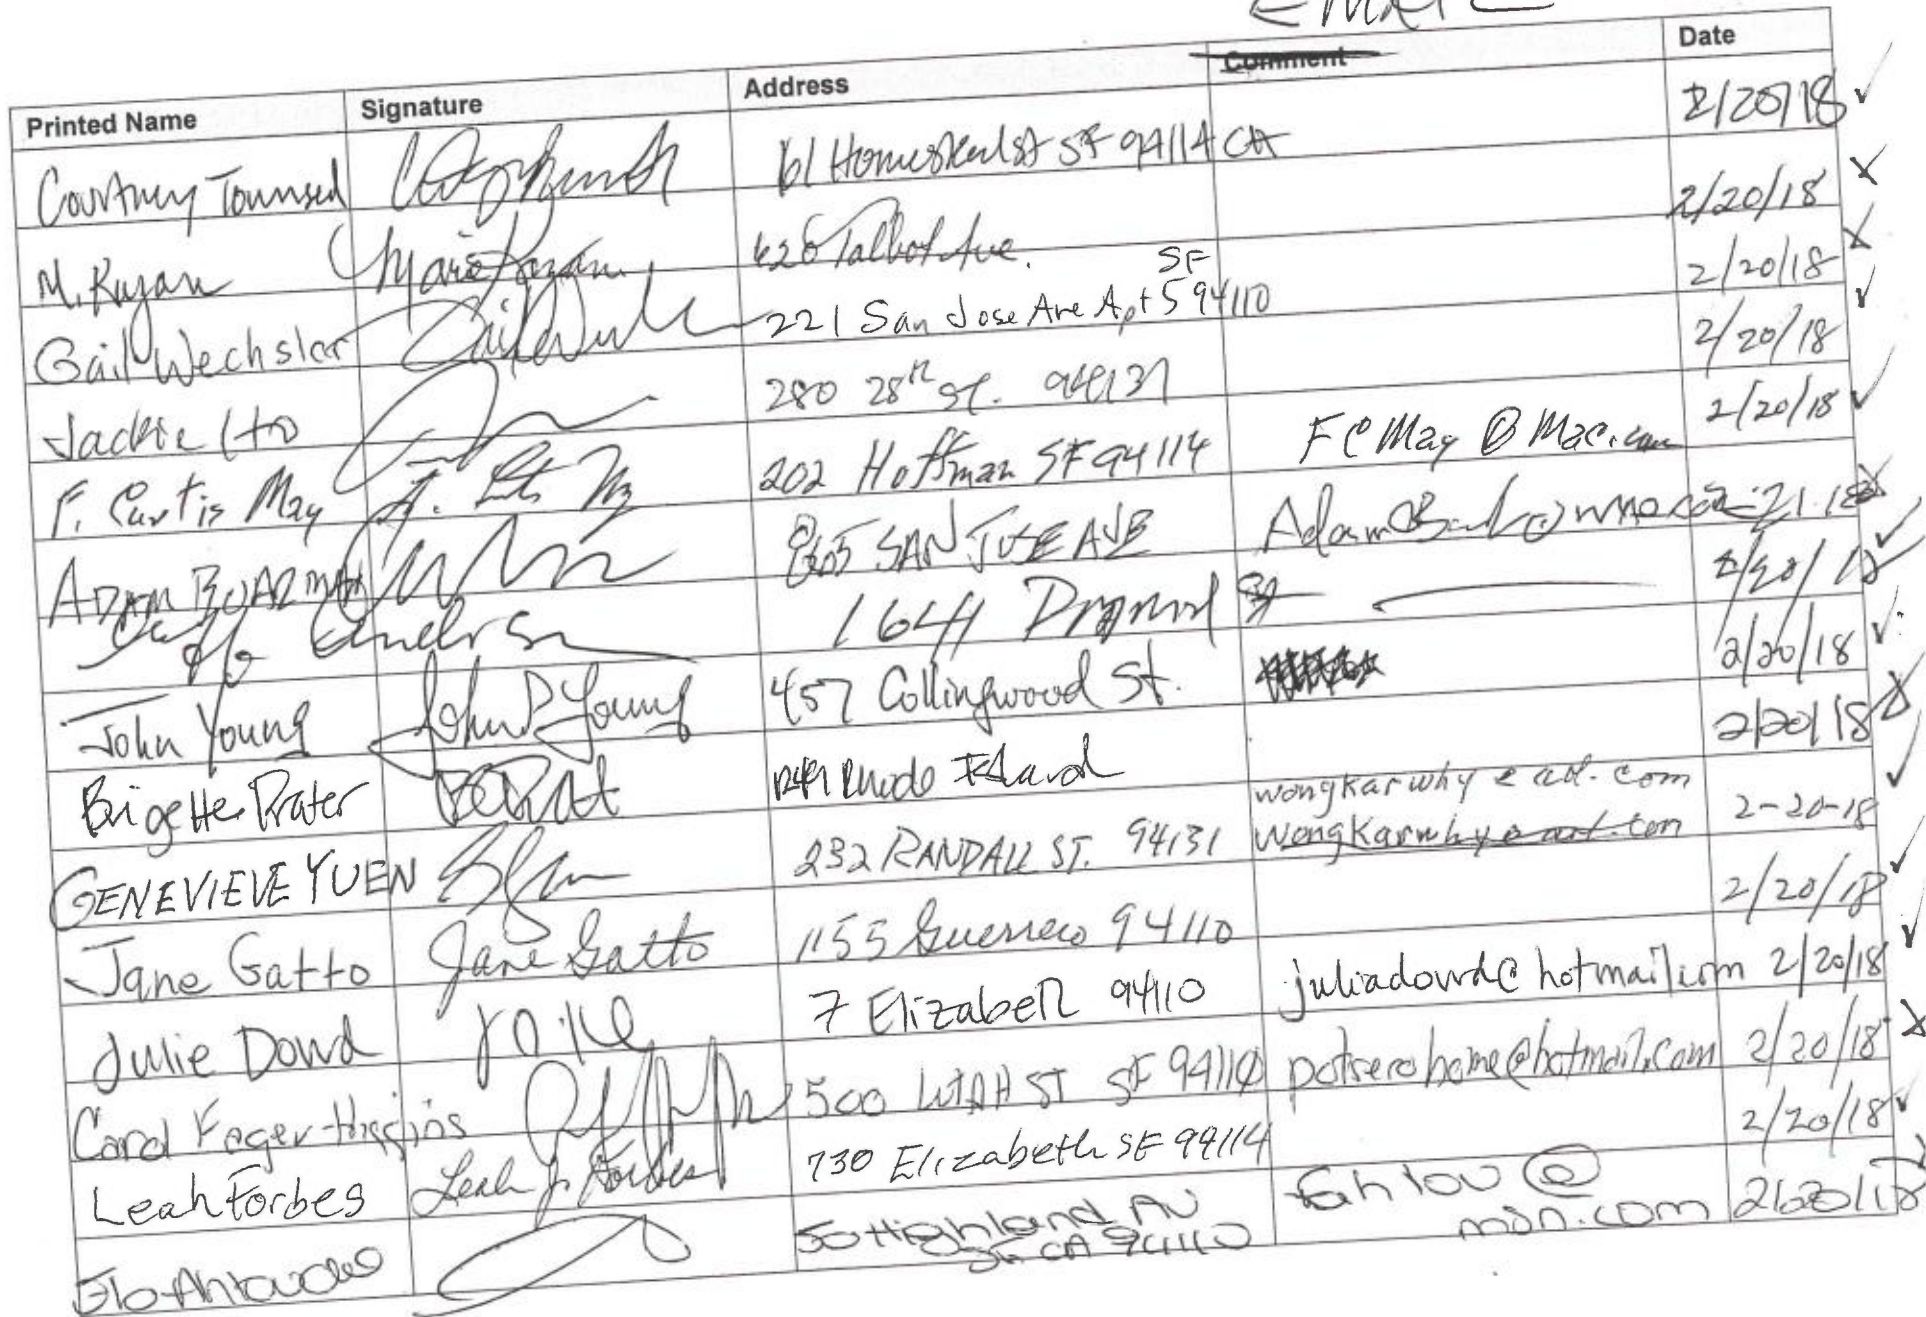 EMAIL
Printed Name Signature Address Comment Date
Courtney Townsed 61 Homestead St SF 94114 CA 2/20/18
M. Kuzan Marie Kuzan 626 Talbot Ave. 2/20/18
Gail Wechsler 221 San Jose Ave Apt 5 SF 94110 2/20/18
Jackie Ito 280 28th St. 94131 2/20/18
F. Curtis May 202 Hoffman SF 94114 FCMay@Mac.com 2/20/18
ADAM BOARMAN SAN JOSE AVE 2.21.18
Anderson 1641 2/20/18
John Young John P Young 457 Collingwood St. 2/20/18
Brigette Prater Rhode Island 2/20/18
GENEVIEVE YUEN 232 RANDALL ST. 94131 wongkarwhy@aol.com 2-20-18
Jane Gatto Jane Gatto 1155 Guerrero 94110 2/20/18
Julie Dowd 7 Elizabeth 94110 juliadowd@hotmail.com 2/20/18
Carol Feger-Higgins 500 UTAH ST SF 94110 potrerohome@hotmail.com 2/20/18
Leah Forbes Leah J. Forbes 730 Elizabeth SF 94114 2/20/18
50 Highland Av SF CA 94110 @msn.com 2/20/18